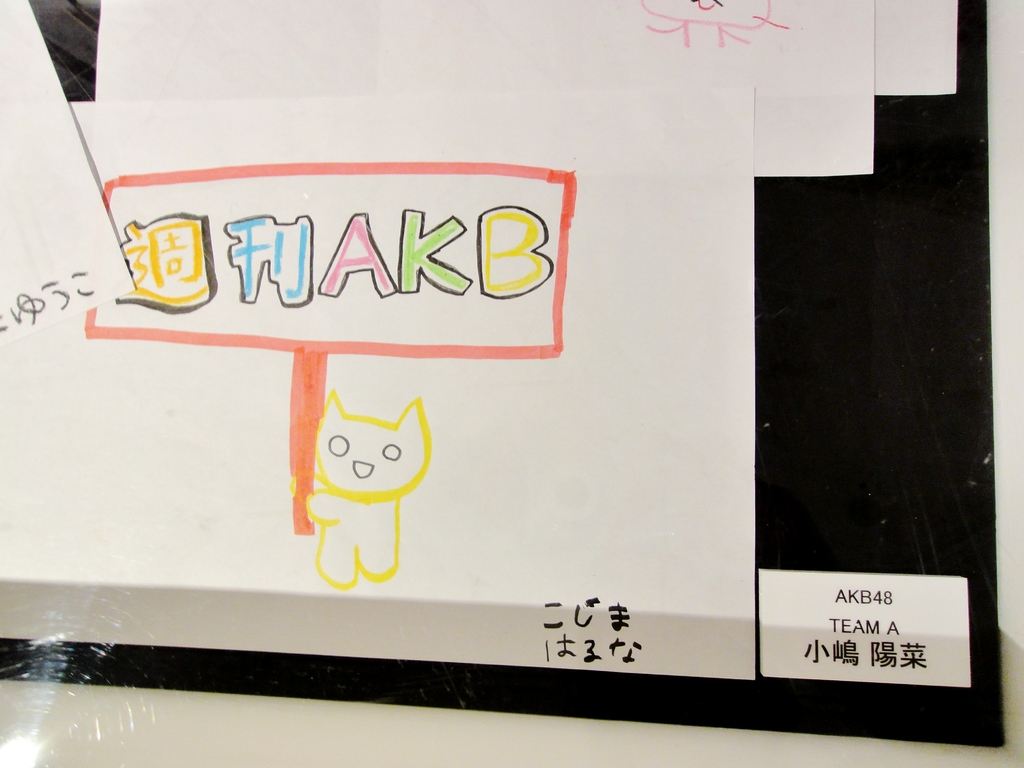 週刊AKB
ゆうこ
こじま
はるな
AKB48
TEAM A
小嶋 陽菜